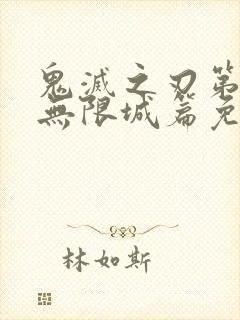 鬼滅之刃第
無限城篇免
林如斯